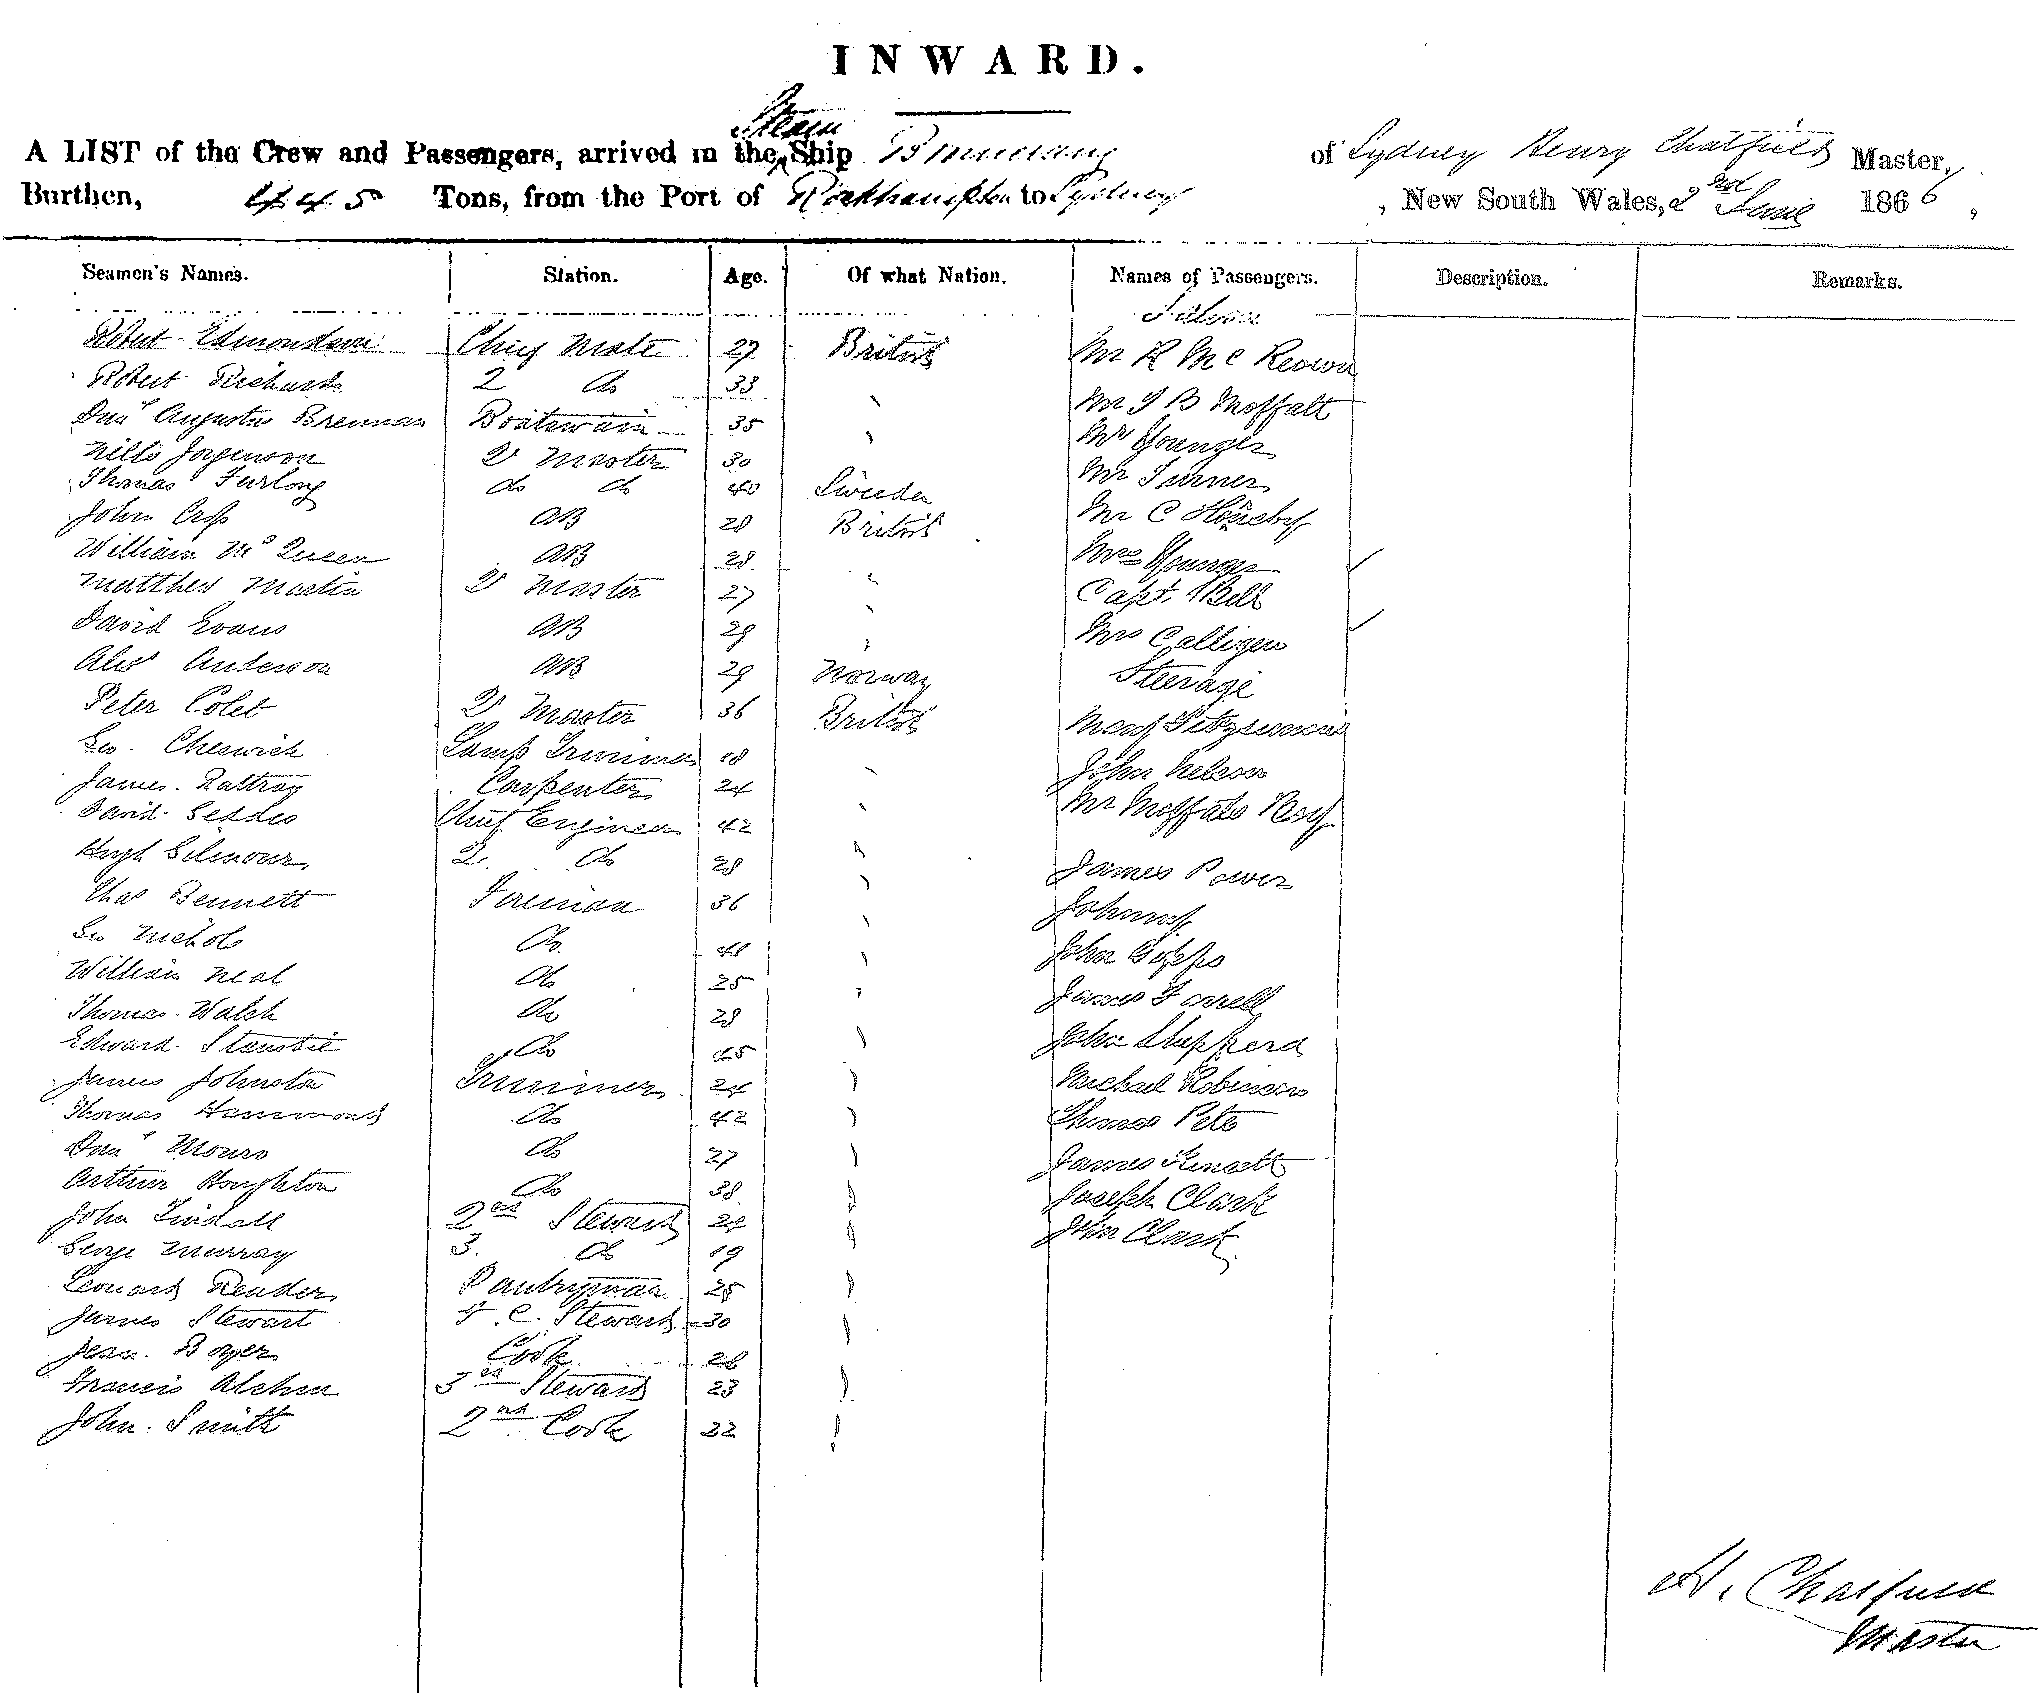 INWARD.
Steam
A LIST of the Crew and Passengers, arrived in the Ship of Sydney Henry Chatfield Master,
Burthen, 445 Tons, from the Port of Rockhampton to Sydney , New South Wales, 2nd June 1866,
Seamen's Names. Station. Age. Of what Nation. Names of Passengers. Description. Remarks.
Saloon
Robert Edmondson Chief Mate 27 British Mr R Mc Keown
Robert Richards 2 do 33
Augustus Brennan Boatswain 35 Mr J B Moffatt
Nills Jorgenson 2 Master 30 Mr Younger
Thomas Furlong do do 40 Sweden Mr Turner
John AB 28 British Mr C
William Mc Queen AB 28 Mrs Younger
Matthew Martin 2 Master 27 Capt Bell
David Evans AB 29 Mrs Calligen
Alex Anderson AB 29 Norway Steerage
Peter Colet 2 Master 36 British Fitzsimmons
Geo. Cheswick Lamp Trimmer 18 John Nelson
James Rattray Carpenter 24 Mr Moffats Boy
David Geddes Chief Engineer 42
Hugh Gilmour 2 do 28 James Power
Chas Bennett Fireman 36
Geo Nichols do John Gipps
William Neal do 25 James Farrell
Thomas Walsh do 28 John Shepherd
Edward do 45 Michael Robinson
James Johnston Trimmer 24 Thomas Pete
Thomas Hammond do 42
Munro do 27 James
Arthur Houghton do 38 Joseph Clark
John Tindall 2nd Steward 24 John Clark
George Murray 3 do 19
Leonard Render Pantryman 25
James Stewart F. C. Steward 30
Jean Boyer Cook 28
Francis 3rd Steward 23
John Smith 2nd Cook 22
H. Chatfield
Master